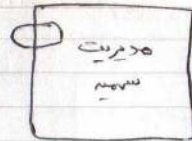 مدیریت
سهمیه